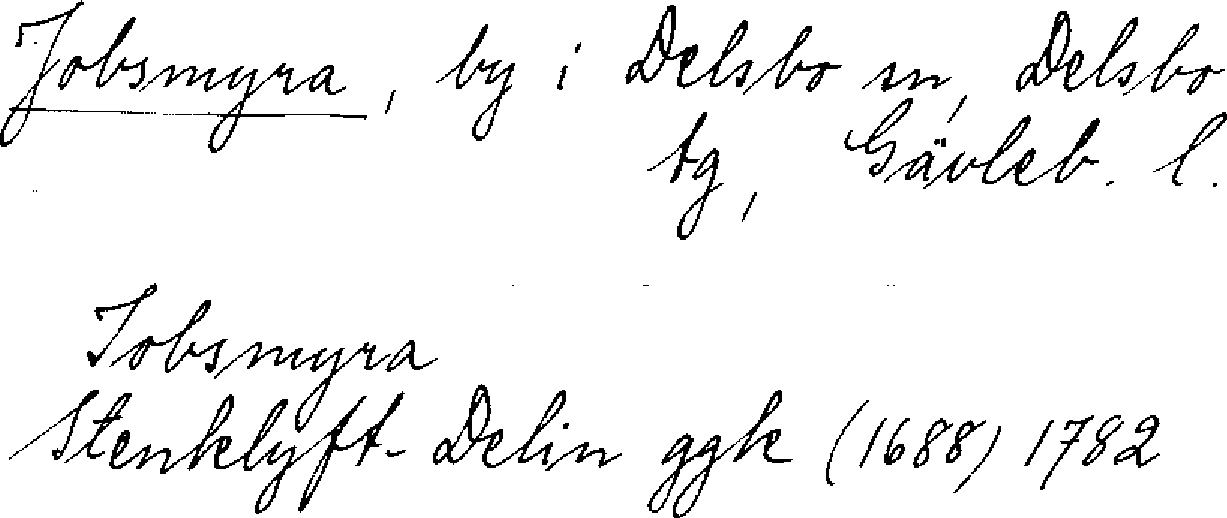 Jobsmyra, by i Delsbo sn, Delsbo
tg, Gävleb. l.
Iobsmyra
Stenklyft-Delin ggk (1688) 1782